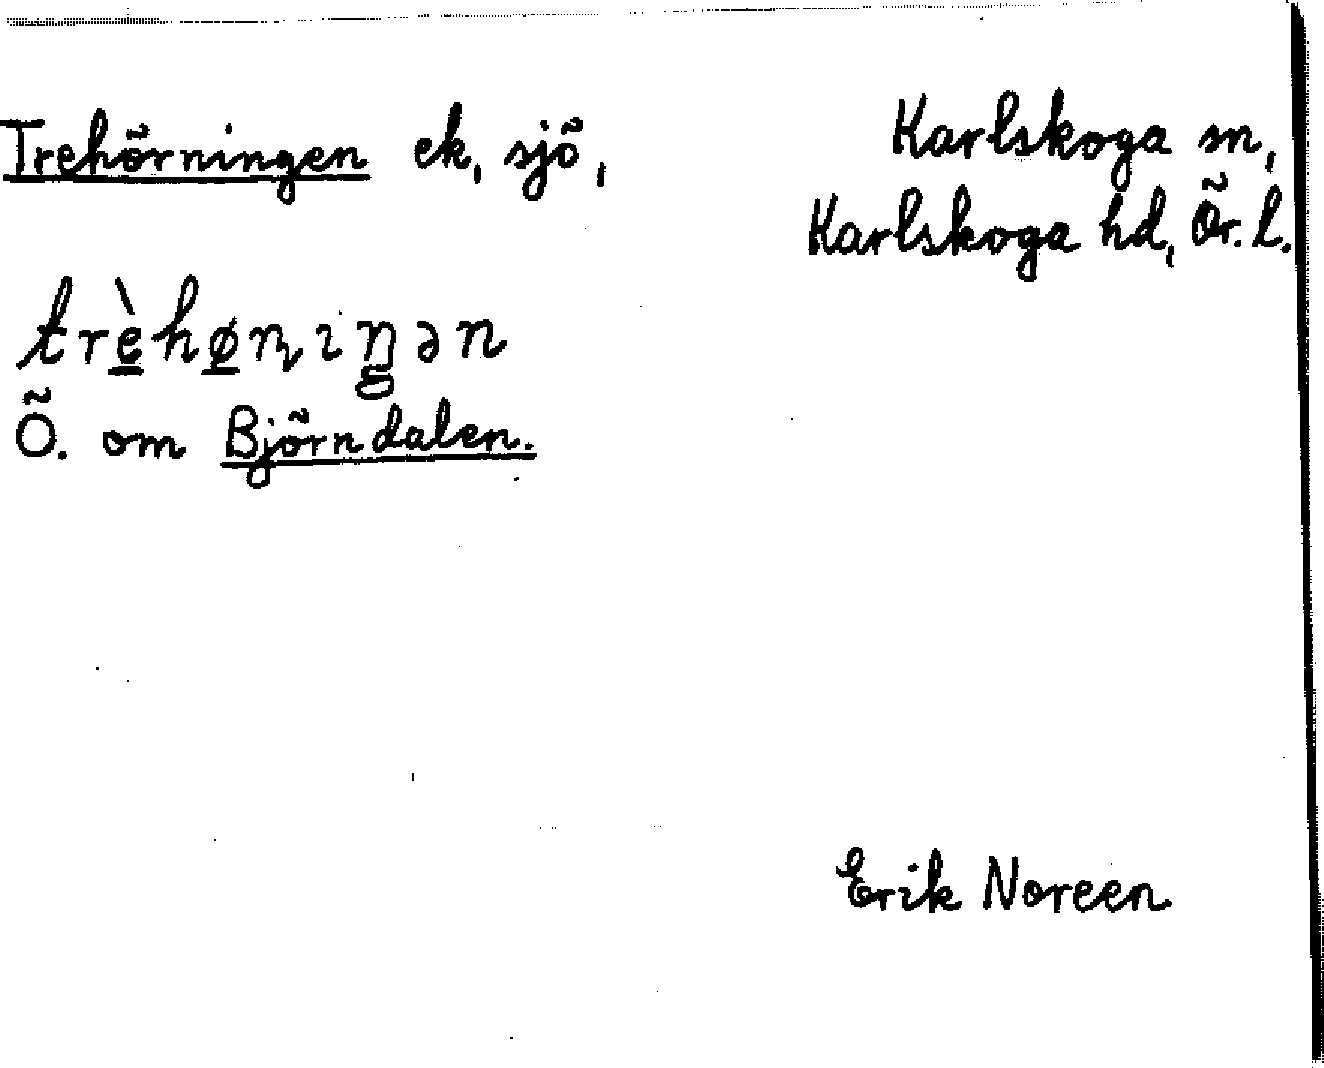 Trehörningen ek, sjö,
Karlskoga sn,
Karlskoga hd, Ör. l.
trèhøɳıŋən
Ö. om Björndalen.
Erik Noreen